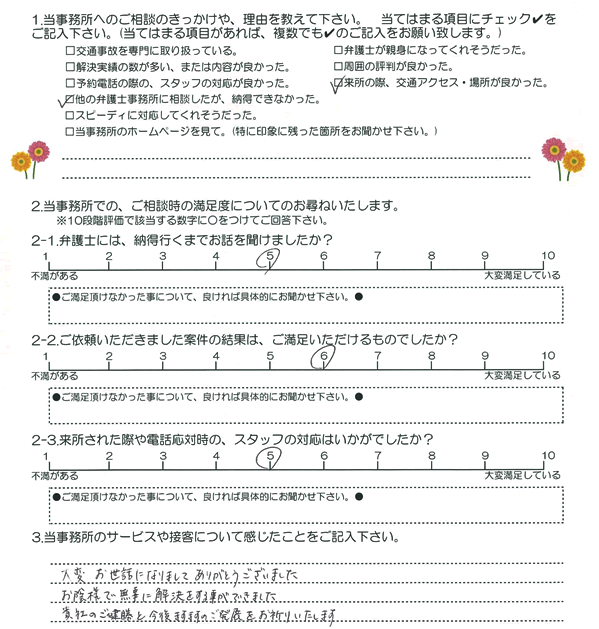 1.当事務所へのご相談のきっかけや、理由を教えて下さい。 当てはまる項目にチェック✔を
ご記入下さい。(当てはまる項目があれば、複数でも✔のご記入をお願い致します。)
□交通事故を専門に取り扱っている。 □弁護士が親身になってくれそうだった。
□解決実績の数が多い、または内容が良かった。 □周囲の評判が良かった。
□予約電話の際の、スタッフの対応が良かった。 ☑来所の際、交通アクセス・場所が良かった。
☑他の弁護士事務所に相談したが、納得できなかった。
□スピーディに対応してくれそうだった。
□当事務所のホームページを見て。(特に印象に残った箇所をお聞かせ下さい。)
2.当事務所での、ご相談時の満足度についてのお尋ねいたします。
※10段階評価で該当する数字に○をつけてご回答下さい。
2-1.弁護士には、納得行くまでお話を聞けましたか?
1 2 3 4 5 6 7 8 9 10
不満がある 大変満足している
●ご満足頂けなかった事について、良ければ具体的にお聞かせ下さい。●
2-2.ご依頼いただきました案件の結果は、ご満足いただけるものでしたか?
1 2 3 4 5 6 7 8 9 10
不満がある 大変満足している
●ご満足頂けなかった事について、良ければ具体的にお聞かせ下さい。●
2-3.来所された際や電話応対時の、スタッフの対応はいかがでしたか?
1 2 3 4 5 6 7 8 9 10
不満がある 大変満足している
●ご満足頂けなかった事について、良ければ具体的にお聞かせ下さい。●
3.当事務所のサービスや接客について感じたことをご記入下さい。
大変 お世話になりまして ありがとうございました
お陰様で無事に解決をする事ができました
貴社のご健勝と今後ますますのご発展をお祈りいたします